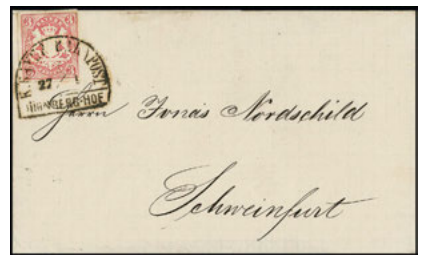 K. BAYER. BAHNPOST
27
BAMBERG-HOF
Herrn Jonas Nordschild
Schweinfurt